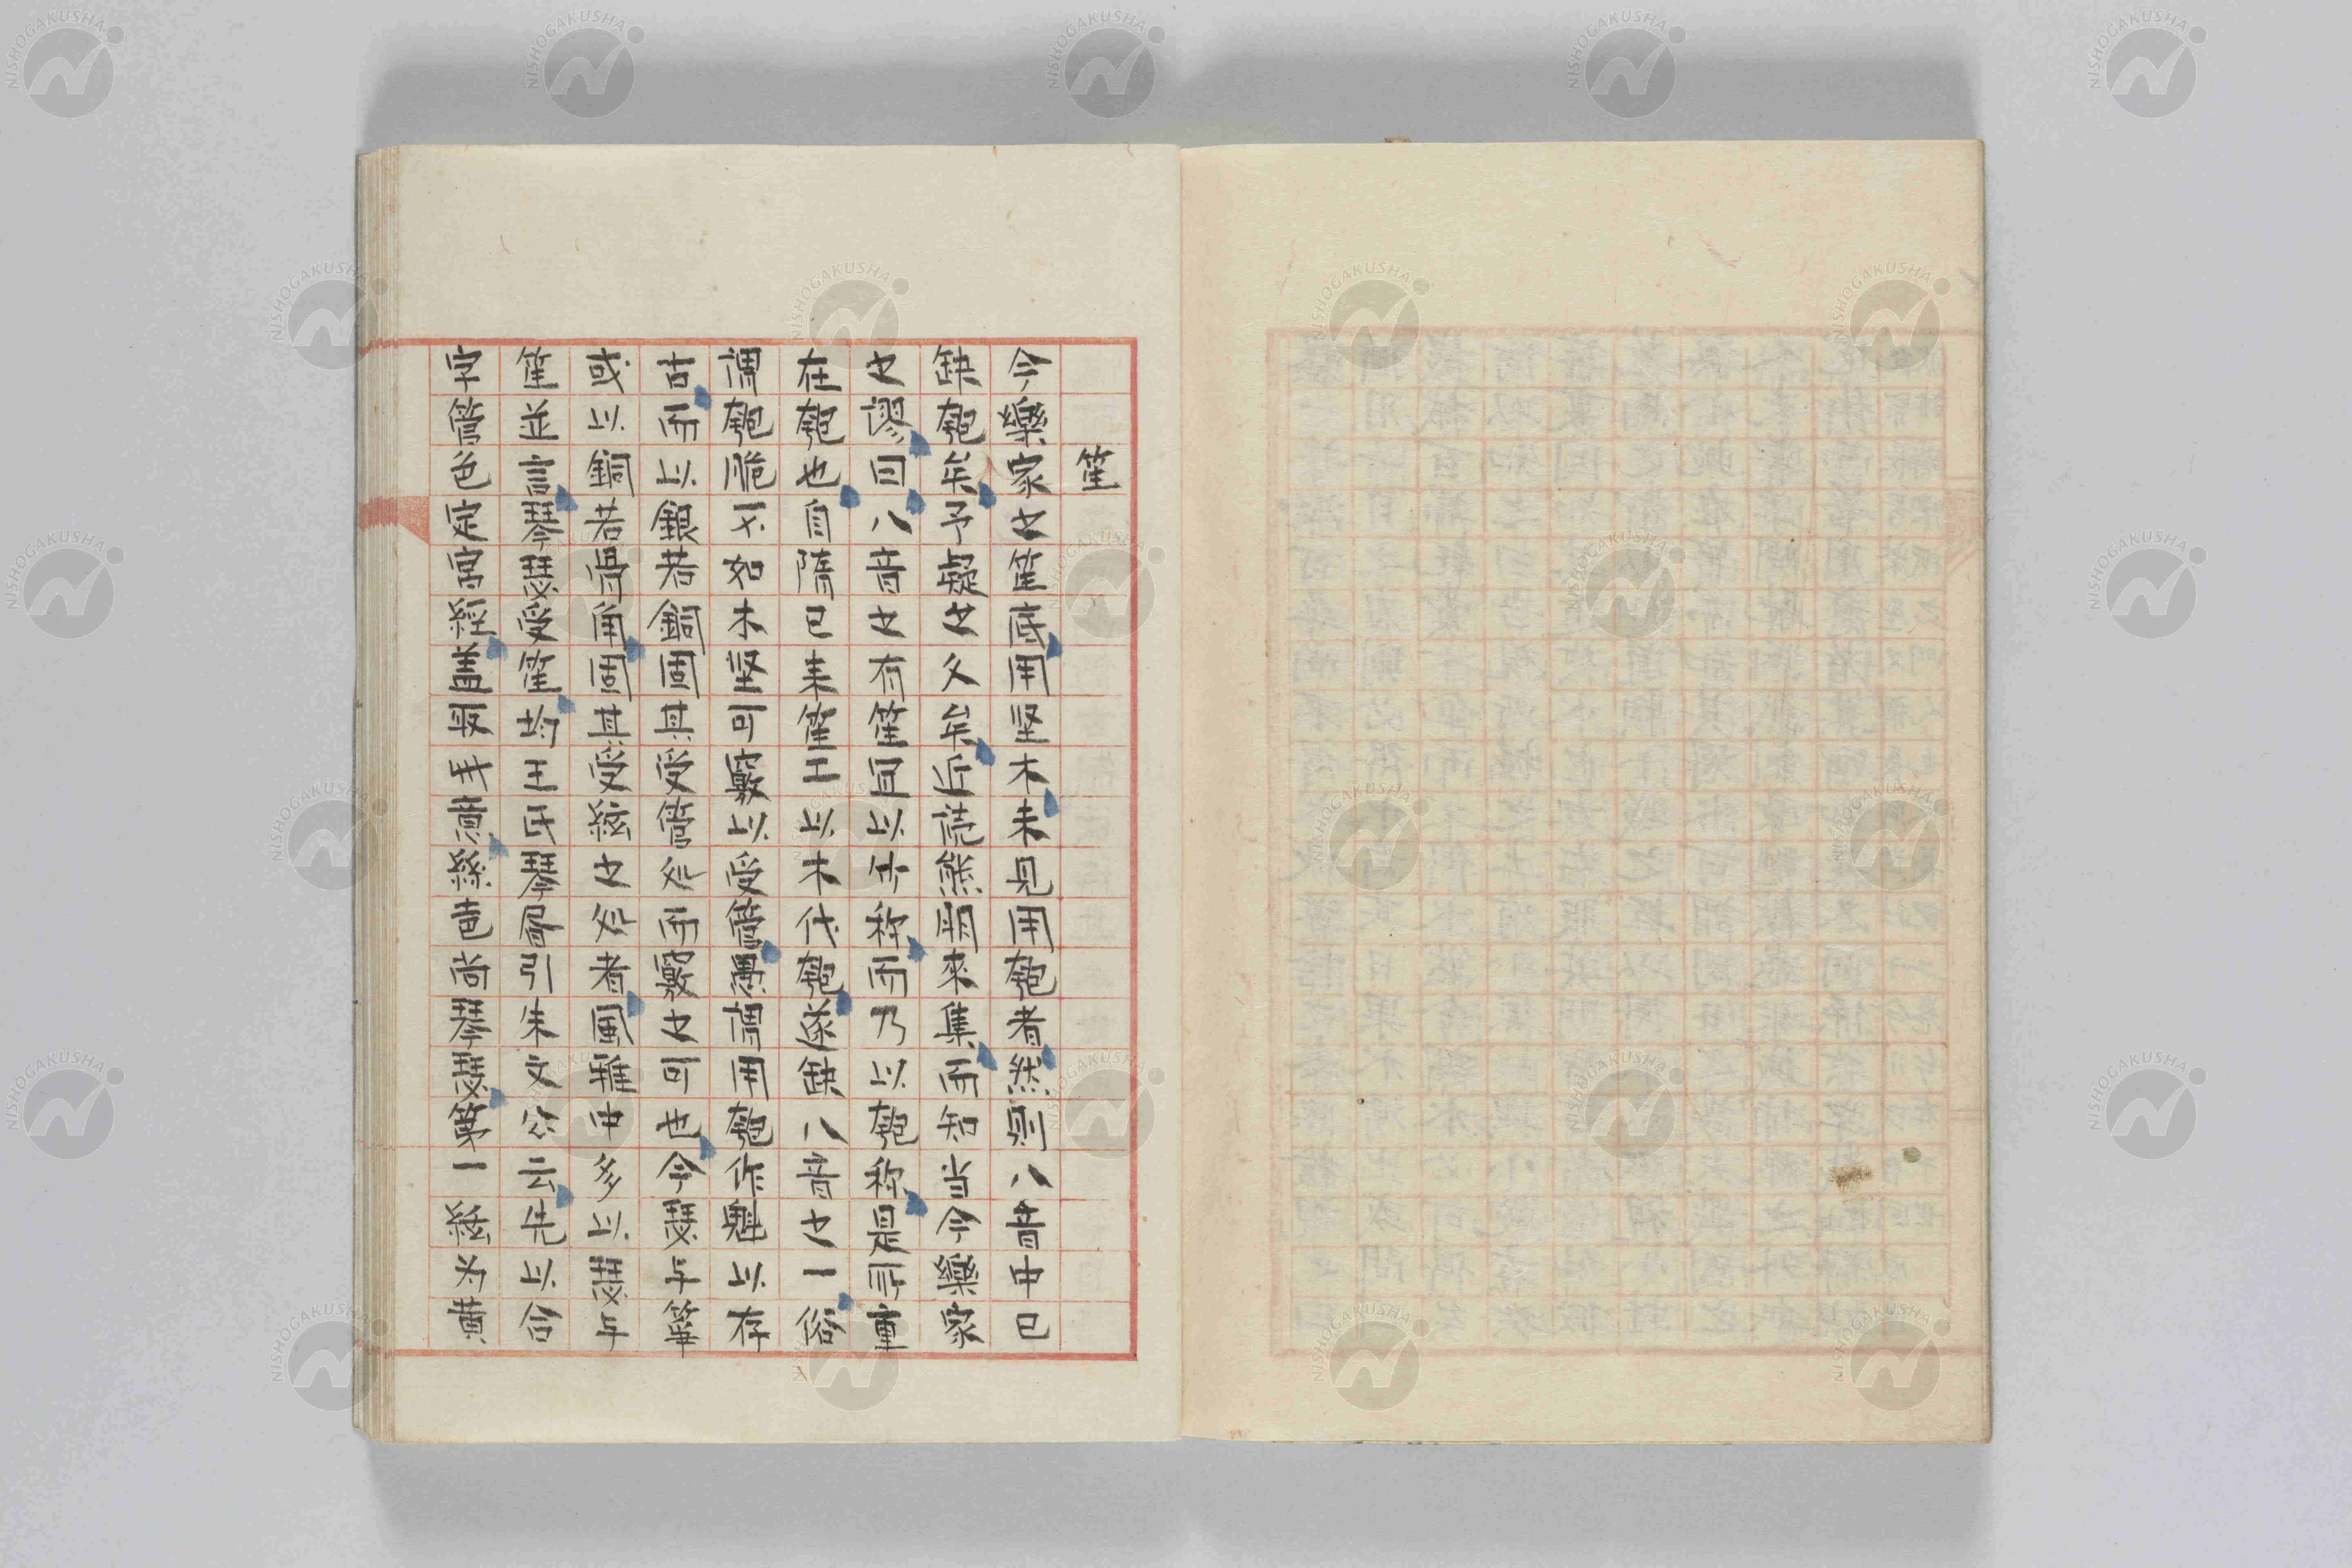 笙
今樂家之笙底用坚木未見用匏者然則八音中已
缺匏矣予疑之久矣近読熊朋來集而知当今樂家
之謬曰八音之有笙宜以竹称而乃以匏称是所重
在匏也自隋已来笙工以木代匏遂缺八音之一俗
謂匏脆不如木坚可竅以受管愚謂用匏作魁以存
古而以銀若銅固其受管処而竅之可也今瑟与箏
或以銅若骨角固其受絃之処者風雅中多以瑟与
笙並言琴瑟受笙均王氏琴㞐引朱文公云先以合
字管色定宮絃盖取氐黄絲也尚琴瑟第一絃为黄
NISHOGAKUSHA